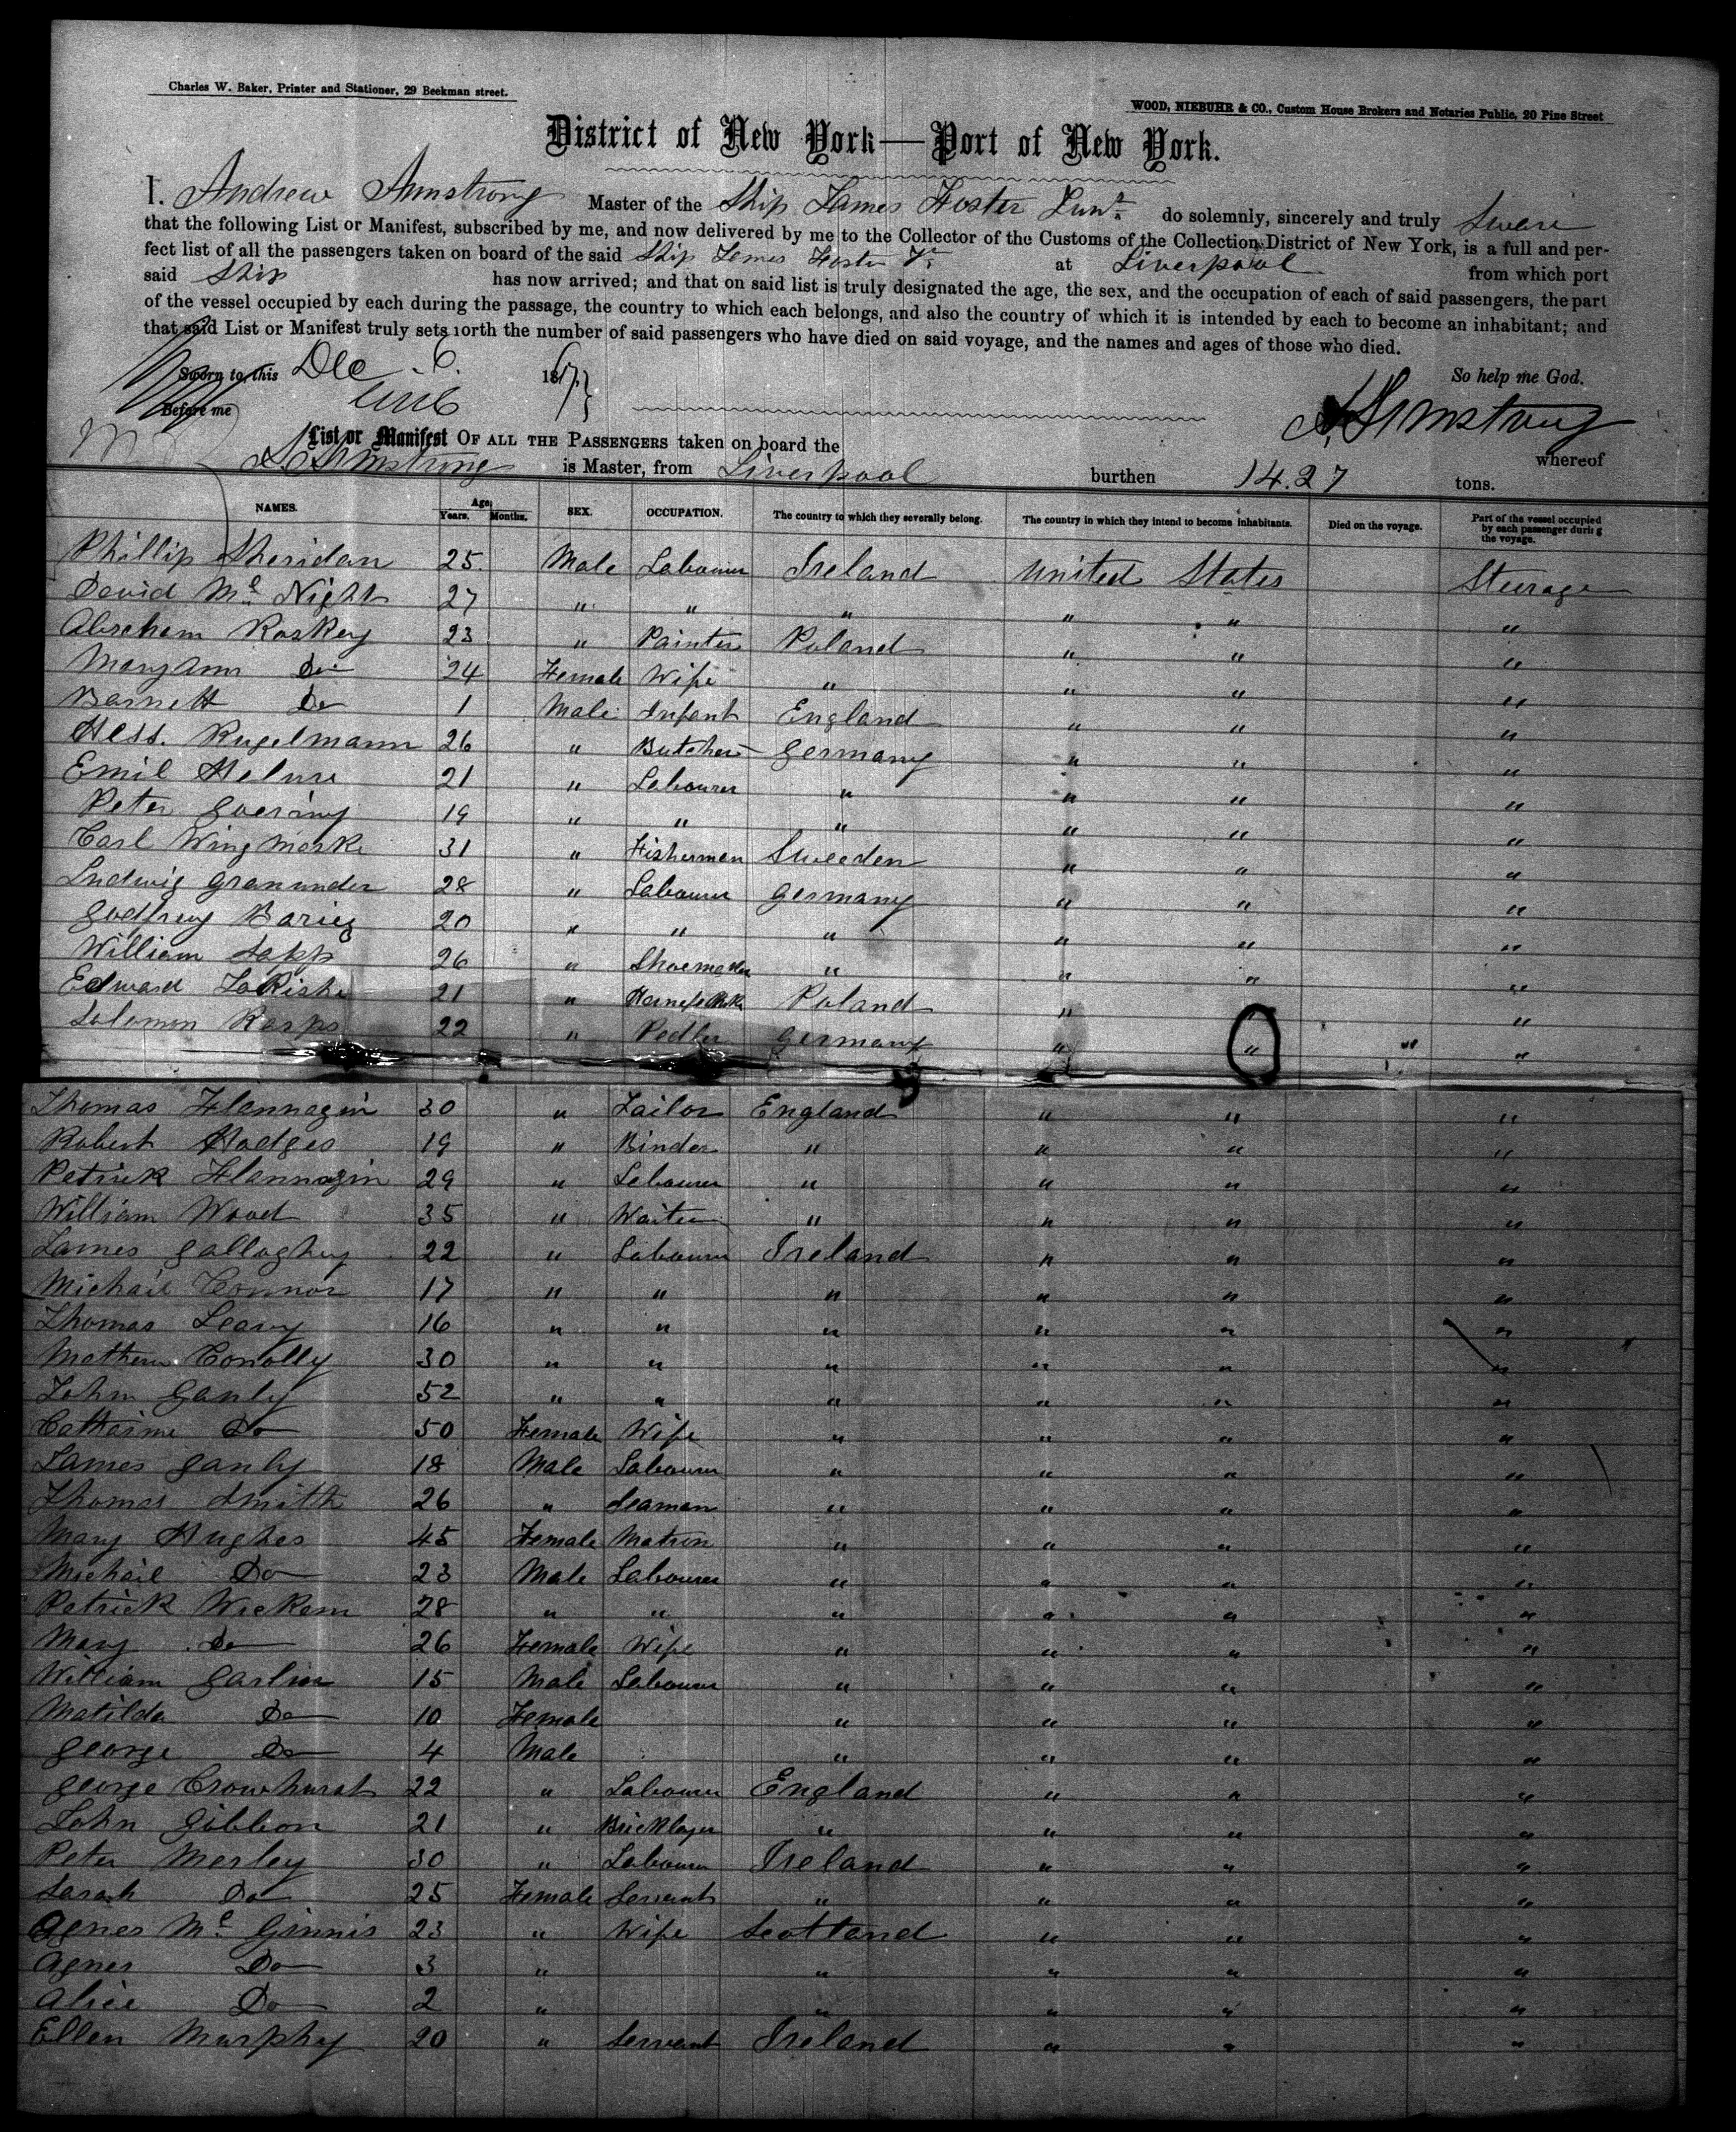 Charles W. Baker, Printer and Stationer, 29 Beekman street.
WOOD, NIEBUHR & CO., Custom House Brokers and Notaries Public, 20 Pine Street
District of New York—Port of New York.
I. Andrew Armstrong Master of the Ship James Foster Junr. do solemnly, sincerely and truly Swear
that the following List or Manifest, subscribed by me, and now delivered by me to the Collector of the Customs of the Collection District of New York, is a full and per-
fect list of all the passengers taken on board of the said Ship James Foster Jr. at Liverpool from which port
said Ship has now arrived; and that on said list is truly designated the age, the sex, and the occupation of each of said passengers, the part
of the vessel occupied by each during the passage, the country to which each belongs, and also the country of which it is intended by each to become an inhabitant; and
that said List or Manifest truly sets forth the number of said passengers who have died on said voyage, and the names and ages of those who died.
Sworn to, this Dec. 6. 1867 So help me God.
Before me A. Armstrong
List or Manifest OF ALL THE PASSENGERS taken on board the whereof
A. Armstrong is Master, from Liverpool burthen 14.27 tons.
NAMES. Age Years. Months. SEX. OCCUPATION. The country to which they severally belong. The country in which they intend to become inhabitants. Died on the voyage. Part of the vessel occupied by each passenger during the voyage.
Phillip Sheridan 25 Male Labourer Ireland United States Steerage
David Mc Night 27 " " " " " "
Abraham Roskey 23 " Painter Poland " " "
Mary Ann Do 24 Female Wife " " " "
Barnett Do 1 Male Infant England " " "
Hess. Rugelmann 26 " Butcher Germany " " "
Emil 21 " Labourer " " " "
Peter Goering 19 " " " " " "
Carl Wingmarke 31 " Fisherman Sweeden " " "
Ludwig 28 " Labourer Germany " " "
Godfrey 20 " " " " " "
William 26 " Shoemaker " " " "
Edward 21 " Poland " " "
Solomon Karps 22 " Pedler Germany " " " "
Thomas Flannagin 30 " Tailor England " " "
Robert Hodges 19 " Binder " " " "
Patrick Flannagin 29 " Labourer " " " "
William Wood 35 " Waiter " " " "
James Gallaghey 22 " Labourer Ireland " " "
Michail Connor 17 " " " " " "
Thomas Leavy 16 " " " " " "
Mathew Conolly 30 " " " " " "
John Ganly 52 " " " " " "
Catharine Do 50 Female Wife " " " "
James Ganly 18 Male Labourer " " " "
Thomas Smith 26 " Seaman " " " "
Mary Hughes 45 Female Matron " " " "
Michail Do 23 Male Labourer " " " "
Patrick Wickem 28 " " " " " "
Mary Do 26 Female Wife " " " "
William Garlin 15 Male Labourer " " " "
Matilda Do 10 Female " " " "
George Do 4 Male " " " "
George Crowhurst 22 " Labourer England " " "
John Gibbon 21 " Bricklayer " " " "
Peter Merley 30 " Labourer Ireland " " "
Sarah Do 25 Female Servant " " " "
Agnes Mc Ginnis 23 " Wife Scotland " " "
Agnes Do 3 " " " " "
Alice Do 2 " " " " "
Ellen Murphy 20 " Servant Ireland " " "